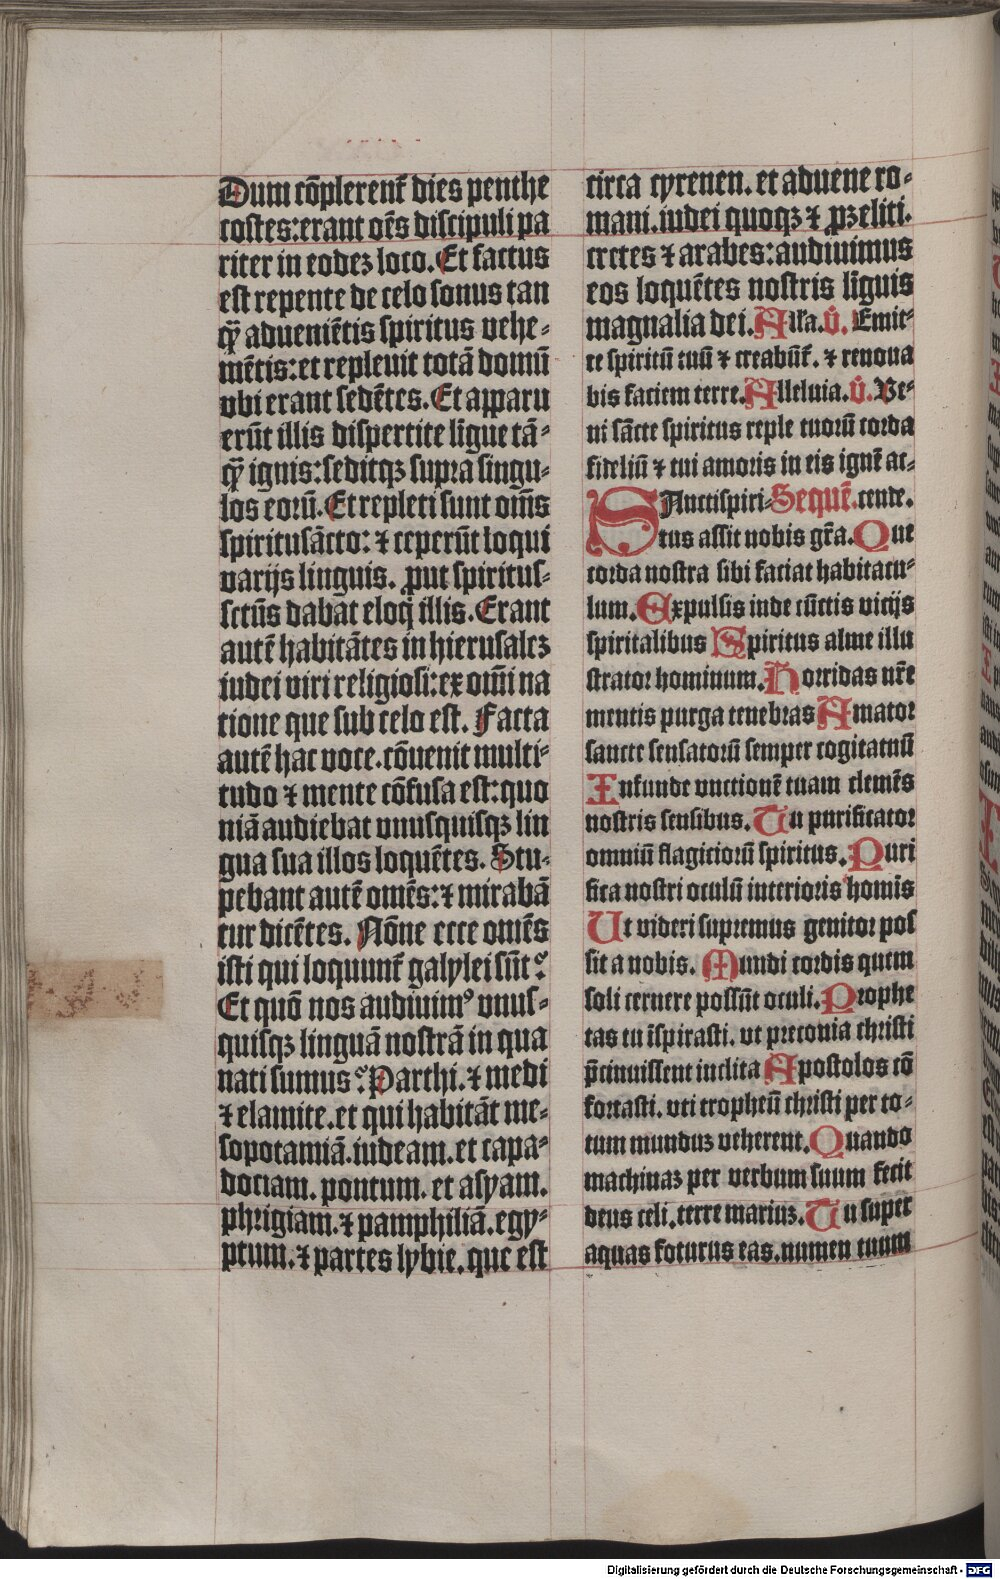 Dum cōplerenť dies penthe
costes: erant oēs discipuli pa
riter in eodeꝫ loco. Et factus
est repente de celo sonus tan
qꝫ̄ aduenietis spiritus vehe-
mētis: et repleuit totā domū
vbi erant sedētes. Et apparu
erūt illis dispertite līgue tā-
qꝫ̄ ignis: seditqꝫ supra singu-
los eorū. Et repleti sunt om̄s
spiritusācto: ⁊ ceperūt loqui
varijs linguis. ꝓut spiritus-
sctūs dabat eloq̄ illis. Erant
autē habitātes in hierusaleꝫ
iudei viri religiosi: ex om̄i na
tione que sub celo est. Facta
autē hac voce. cōuenit multi-
tudo ⁊ mente cōfusa est: quo
niā audiebat vnusquisqꝫ lin
gua sua illos loquētes. Stu-
pebant autē omēs: ⁊ mirabā
tur dicētes. Nōne ecce omēs
isti qui loquunť galylei sūt?
Et quō nos audiuimꝰ vnus-
quisqꝫ linguā nostrā in qua
nati sumus? Parthi. ⁊ medi
⁊ elamite. et qui habitāt me-
sopotamiā. iudeam. et capa-
dociam. pontum. et asyam.
phrigiam. ⁊ pamphiliā. egy-
ptum. ⁊ partes lybie. que est
circa cyrenen. et aduene ro-
mani. iudei quoqꝫ ⁊ ꝓzeliti.
cretes ⁊ arabes: audiuimus
eos loquētes nostris līguis
magnalia dei. Alľa. v̊. Emit-
te spiritū tuū ⁊ creabūť. ⁊ renoua
bis faciem terre. Alleluia. v̊. Ve-
ni sācte spiritus reple tuorū corda
fideliū ⁊ tui amoris in eis ignē ac-
SAncti spiri- Sequē. cende.
tus assit nobis grā. Que
corda nostra sibi faciat habitacu-
lum. Expulsis inde cūctis vicijs
spiritalibus Spiritus alme illu
strator hominum. Horridas nrē
mentis purga tenebras Amator
sancte sensatorū semper cogitatuū
Infunde vnctionē tuam clemēs
nostris sensibus. Tu purificator
omniū flagitiorū spiritus. Puri
fica nostri oculū interioris homīs
Ut videri supremus genitor pos
sit a nobis. Mundi cordis quem
soli cernere possūt oculi. Prophe
tas tu īspirasti. vt preconia christi
p̄cinuissent inclita Apostolos cō
fortasti. vti tropheū christi per to-
tum munduꝫ veherent. Quando
machinaꝫ per verbum suum fecit
deus celi. terre mariuꝫ. Tu super
aquas foturus eas. numen tuum
Digitalisierung gefördert durch die Deutsche Forschungsgemeinschaft - DFG